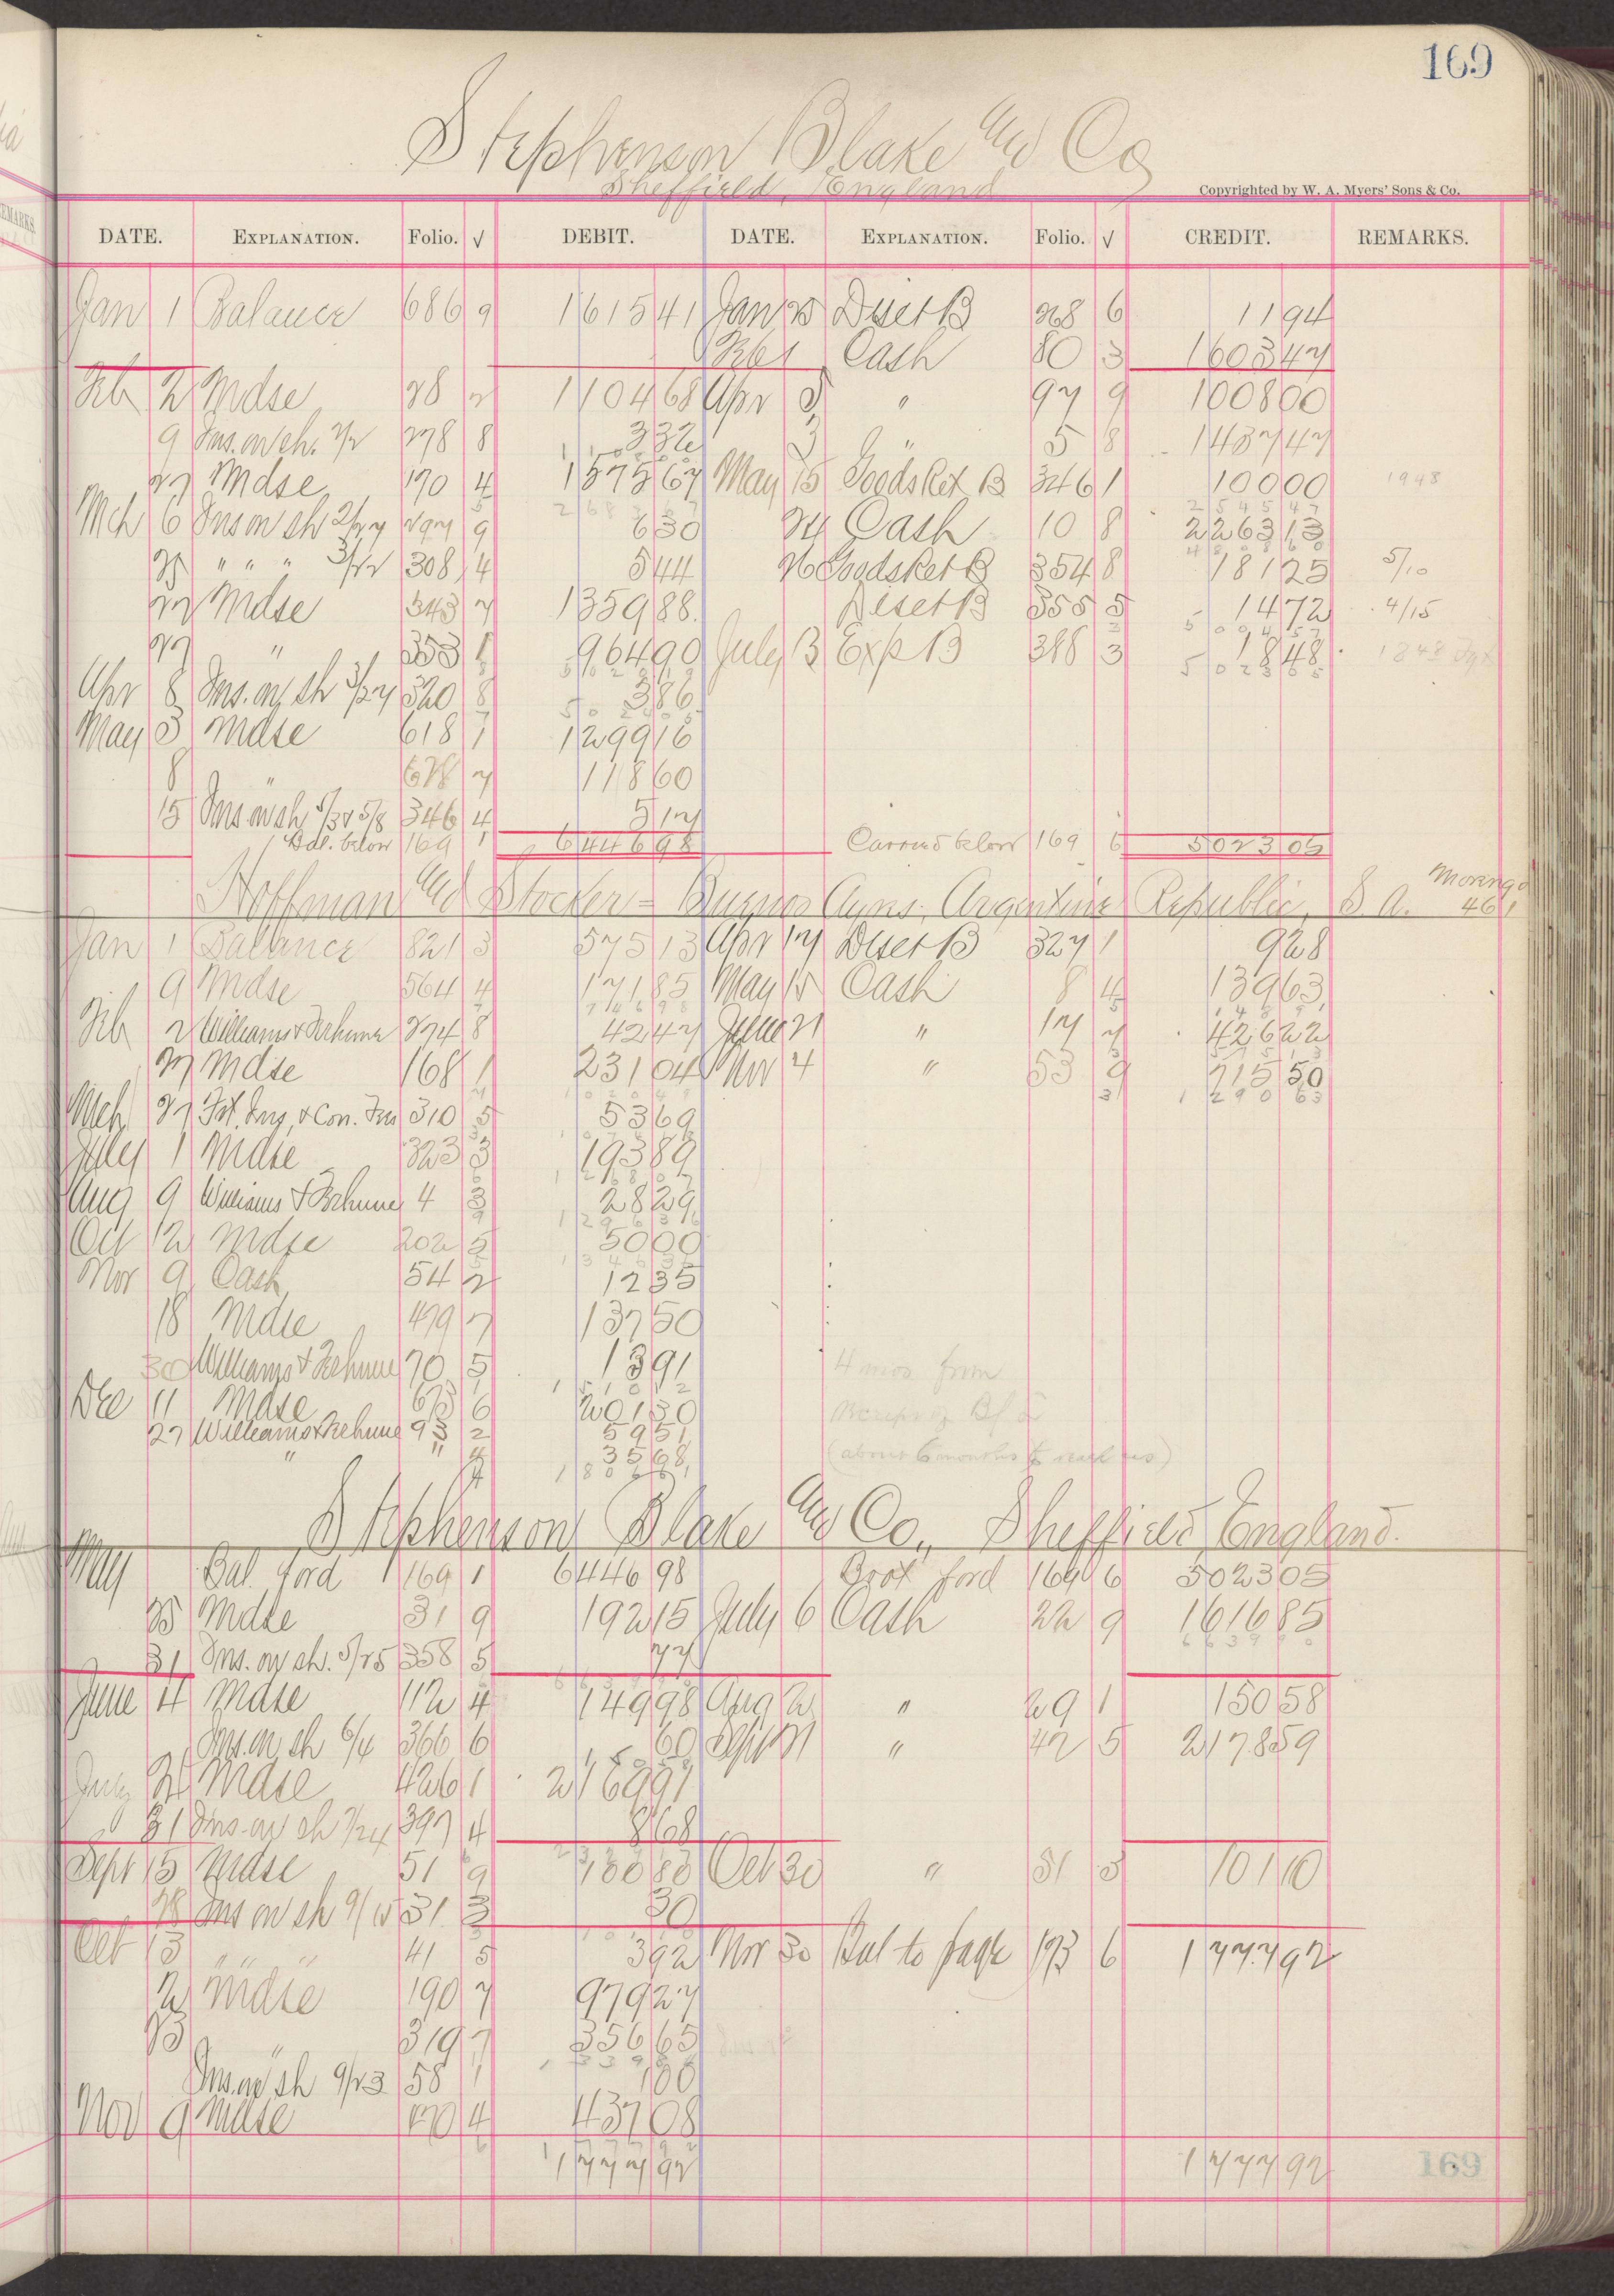 169
Stephenson Blake and Co
Sheffield, England
Copyrighted by W. A. Myers' Sons & Co.
DATE. EXPLANATION. Folio. √ DEBIT. DATE. EXPLANATION. Folio. √ CREDIT. REMARKS.
Jan 1 Balance 686 9 1615 41 Jan 25 Disct B 268 6 11 94
Feb 1 Cash 80 3 1603 47
Feb 2 Mdse 28 2 1104 68 Apr 3 " 97 9 1008 00
9 Ins. on sh. 278 8 3 32 3 " 5 8 1437 47
27 Mdse 170 4 1575 67 May 15 Goods Ret B 346 1 100 00 1948
Mch 6 Ins on sh 2/27 297 9 6 30 24 Cash 10 8 2263 13
25 " " " 308 4 5 44 26 Goods Ret B 354 8 181 25 5/10
22 Mdse 343 7 1359 88 Disct B 355 5 14 72 4/15
27 " 353 1 964 90 July 13 Exp B 388 3 18 48
Apr 8 Ins. on sh 3/27 320 8 3 86
May 3 Mdse 618 1 1299 16
8 " 7 118 60
15 Ins on sh 5/3 & 5/8 346 4 5 17
Bal. below 169 1 6446 98 Carried below 169 6 5023 05
Hoffman and Stocker - Buenos Ayres, Argentine Republic, S. A. 461
Jan 1 Balance 821 3 575 13 Apr 17 Disct B 327 1 9 28
9 Mdse 564 4 171 85 May 15 Cash 8 4 139 63
Feb 2 Williams & Terhune 274 8 42 47 June 21 " 17 7 426 22
27 Mdse 168 1 231 04 Nov 4 " 53 9 715 50
Mch 27 Frt. Ins, & Con. Inv 310 5 53 69
July 1 Mdse 323 3 193 89
Aug 9 Williams & Terhune 4 3 28 29
Oct 12 Mdse 202 5 50 00
Nov 9 Cash 54 2 12 35
18 Mdse 479 7 137 50
30 Williams & Terhune 70 5 13 91 4 mos from
Dec 11 Mdse 6 201 30
27 Williams & Terhune 93 2 59 51
" " 4 35 68 (about 6 months to reach us)
Stephenson Blake and Co., Sheffield, England.
May Bal ford 169 1 6446 98 Brot ford 169 6 5023 05
25 Mdse 31 9 192 15 July 6 Cash 22 9 1616 85
31 Ins. on sh. 5/25 358 5 77
June 4 Mdse 112 4 149 98 Aug 2 " 29 1 150 58
Ins. on sh 6/4 366 6 60 Sept 21 " 42 5 2178 59
July 24 Mdse 426 1 2169 91
31 Ins. on sh 7/24 397 4 8 68
Sept 15 Mdse 51 9 100 80 Oct 30 " 51 3 101 10
28 Ins on sh 9/15 31 3 30
Oct 13 " " " 41 5 3 92 Nov 30 Bal to page 173 6 1777 92
2 Mdse 190 7 979 27
23 " 319 7 356 65
Ins. on sh 9/23 58 1 1 00
Nov 9 Mdse 470 4 437 08
1777 92 1777 92
169